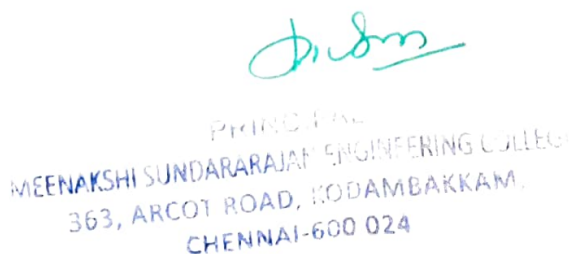 PRINCIPAL
MEENAKSHI SUNDARARAJAN ENGINEERING COLLEGE
363, ARCOT ROAD, KODAMBAKKAM,
CHENNAI-600 024